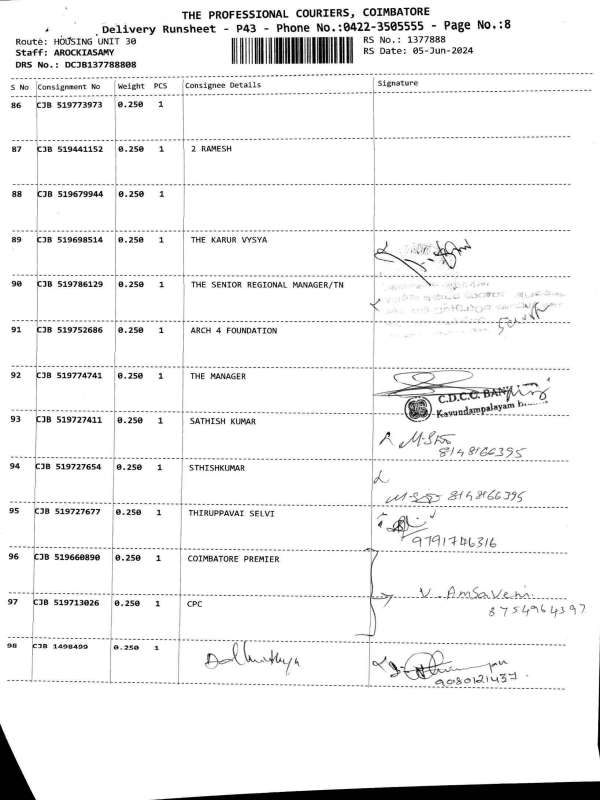 THE PROFESSIONAL COURIERS, COIMBATORE
Delivery Runsheet - P43 - Phone No.:0422-3505555 - Page No.:8
Route: HOUSING UNIT 30
RS No.: 1377888
Staff: AROCKIASAMY
RS Date: 05-Jun-2024
DRS No.: DCJB137788808
S No Consignment No Weight PCS Consignee Details Signature
86 CJB 519773973 0.250 1
87 CJB 519441152 0.250 1 2 RAMESH
88 CJB 519679944 0.250 1
89 CJB 519698514 0.250 1 THE KARUR VYSYA
90 CJB 519786129 0.250 1 THE SENIOR REGIONAL MANAGER/TN
91 CJB 519752686 0.250 1 ARCH 4 FOUNDATION
92 CJB 519774741 0.250 1 THE MANAGER
C.D.C.C. BANK
Kavundampalayam
93 CJB 519727411 0.250 1 SATHISH KUMAR
8148166395
94 CJB 519727654 0.250 1 STHISHKUMAR
8148166395
95 CJB 519727677 0.250 1 THIRUPPAVAI SELVI
9791746316
96 CJB 519660890 0.250 1 COIMBATORE PREMIER
V. Amsaveni
97 CJB 519713026 0.250 1 CPC
8754964397
98 CJB 1498499 0.250 1
9080121437